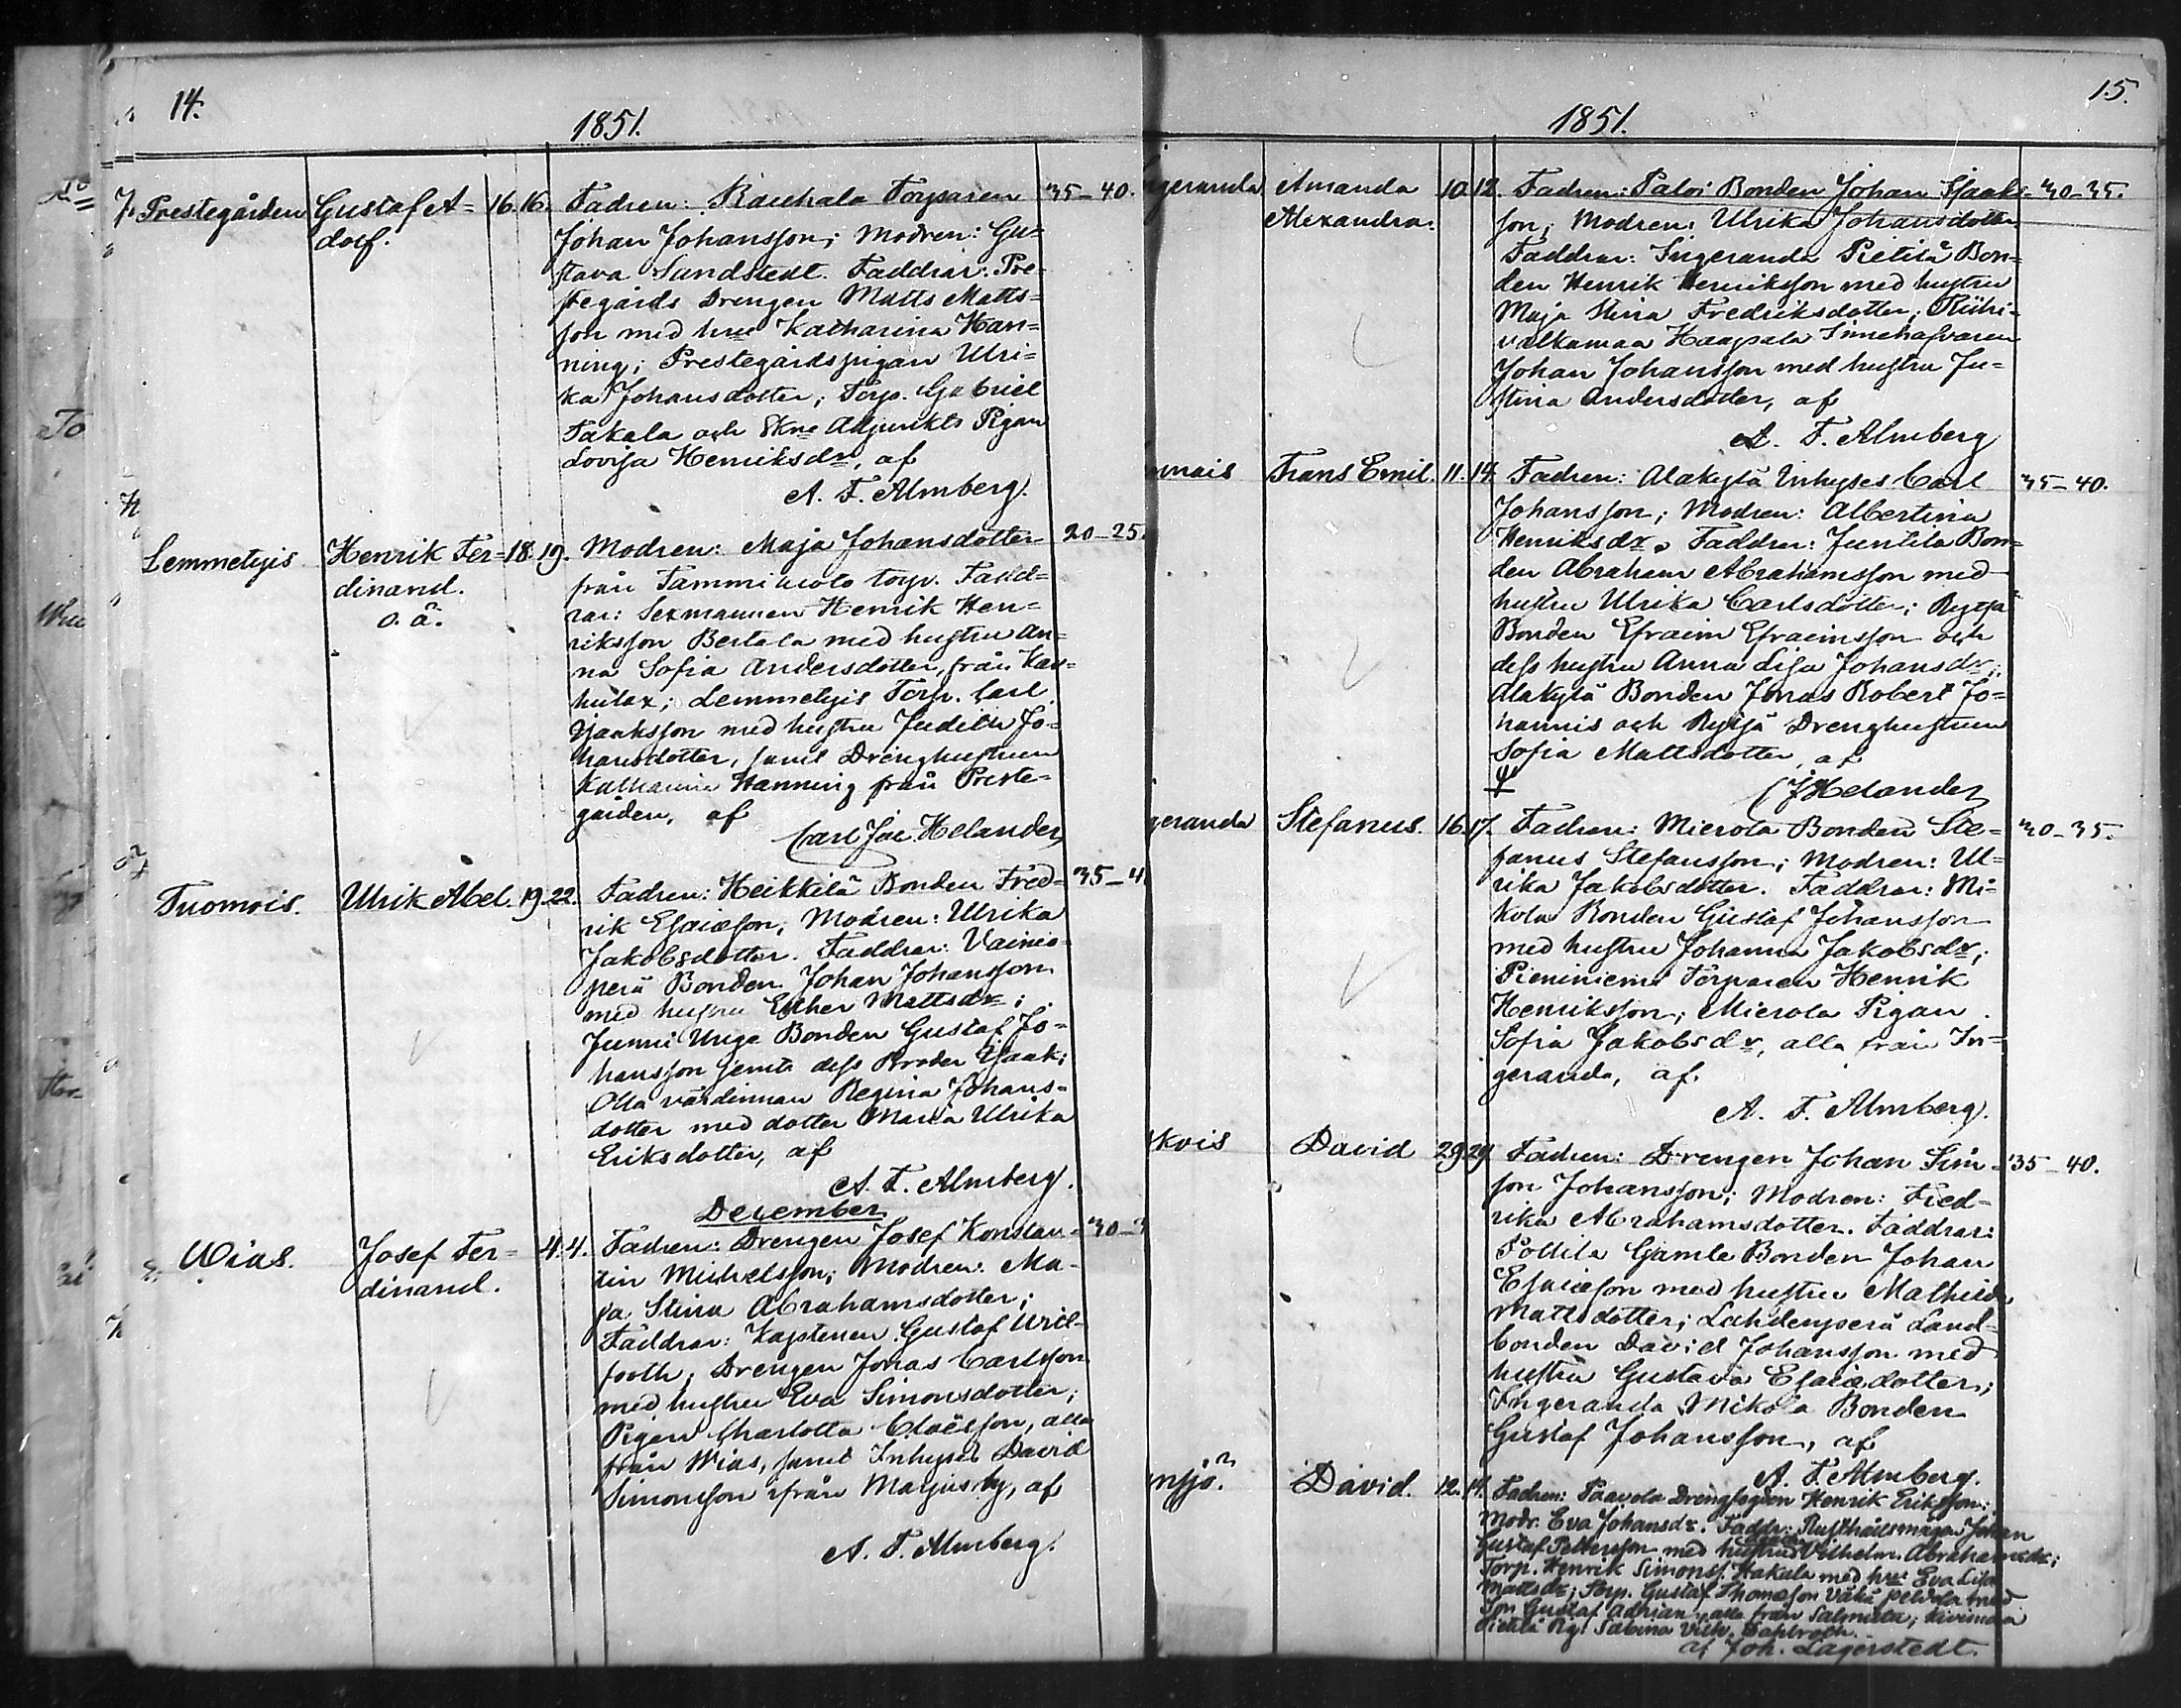 14.
1851.
Prestegården Gustaf A= 16. 16. Fadren: Rauhala Torparen 35-40.
dolf. Johan Johansson; Modren: Gu=
stava Sundstedt. Faddrar: Pre=
stegårds Drengen Matts Matts=
son med hru Katharina Han=
ning; Prestegårdspigan Ulri=
ka Johansdotter; Torp. Gabriel
Takala och Adjunkts Pigan
Lovisa Henriksdr, af
A. F. Almberg.
Lemmetyis Henrik Fer= 18. 19. Modren: Maja Johansdotter 20-25.
dinand. från Tammikoto torp. Fadd=
o. ä. rar: Sexmannen Henrik Hen=
riksson Bertala med hustru An=
na Sofia Andersdotter, från Kan=
hulax; Lemmetyis Torp. Carl
Isaksson med hustru Judith Jo=
hansdotter, samt Drenghustrun
Katharina Hanning från Preste=
gården, af
Carl Joh. Helander
Tuomois. Ulrik Abel. 19. 22. Fadren: Heikkilä Bonden Fred= 35-4
rik Esaiæson; Modren: Ulrika
Jakobsdotter. Faddrar: Vainio=
perä Bonden Johan Johansson
med hustru Esther Mattsdr;
Junni Unge Bonden Gustaf Jo=
hansson jemte dess Broder Isaak;
Olla värdinnan Regina Johans=
dotter med dotter Maria Ulrika
Eriksdotter, af
A. F. Almberg.
December
Wias. Josef Fer= 4. 4. Fadren: Drengen Josef Konstan= 30-3
dinand. tin Michelsson; Modren: Ma=
ja Stina Abrahamsdotter;
Faddrar: Kaptenen Gustaf Wril=
footh; Drengen Jonas Carlsson
med hustru Eva Simonsdotter;
Pigan Charlotta Claësson, alla
från Wias, samt Inhyses David
Simonsson från Marjusby, af
A. F. Almberg.
15.
1851.
geranda Amanda 10. 12. Fadren: Paloi Bonden Johan Isaaks= 30-35.
Alexandra. son; Modren: Ulrika Johansdotter.
Faddrar: Ingeranda Pietilä Bon=
den Henrik Henriksson med hustru
Maja Stina Fredriksdotter; Riihi=
valkamaa Haapala Innehafvaren
Johan Johansson med hustru Ju=
stina Andersdotter, af
A. F. Almberg
nnais Frans Emil. 11. 14. Fadren: Alakylä Inhyses Carl 35-40.
Johansson; Modren: Albertina
Henriksdr. Faddrar: Juntila Bon=
den Abraham Abrahamsson med
hustru Ulrika Carlsdotter; Rytsä
Bonden Efraim Efraimsson och
dess hustru Anna Lisa Johansdr;
Alakylä Bonden Jonas Robert Jo=
hannis och Rytsä Drenghustrun
Sofia Mattsdotter, af
CJHelander
geranda Stefanus. 16. 17. Fadren: Mierola Bonden Ste= 30-35.
fanus Stefansson; Modren: Ul=
rika Jakobsdotter. Faddrar: Mi=
kola Bonden Gustaf Johansson
med hustru Johanna Jakobsdr;
Pieniniemi Torparen Henrik
Henriksson; Mierola Pigan
Sofia Jakobsdr, alla från In=
geranda, af
A. F. Almberg.
kois David 29. 29. Fadren: Drengen Johan Sim= 35-40.
son Johansson; Modren: Fred=
rika Abrahamsdotter. Faddrar:
Pollila Gamle Bonden Johan
Esaiæson med hustru Mathilda
Mattsdotter; Lahdenperä Land=
bonden David Johansson med
hustru Gustava Esaiædotter;
Ingeranda Mikola Bonden
Gustaf Johansson, af
A. F. Almberg.
nsjö. David. 12. 14. Fadren: Paavola Drengfogden Henrik Eriksson;
Modr. Eva Johansdr. Faddr: Rusthålsmågen Johan
Gustaf Pettersson med hustru Vilhelm. Abrahamsdr;
Torp. Henrik Simonss. Hakula med hru Eva Lisa
Mattsdr; Torp. Gustaf Thomasson Vähä Peldola med
son Gustaf Adrian, alla från Salmista; Kivimaa
Pietilä Pig. Sabina Vilh.
af Joh. Lagerstedt.